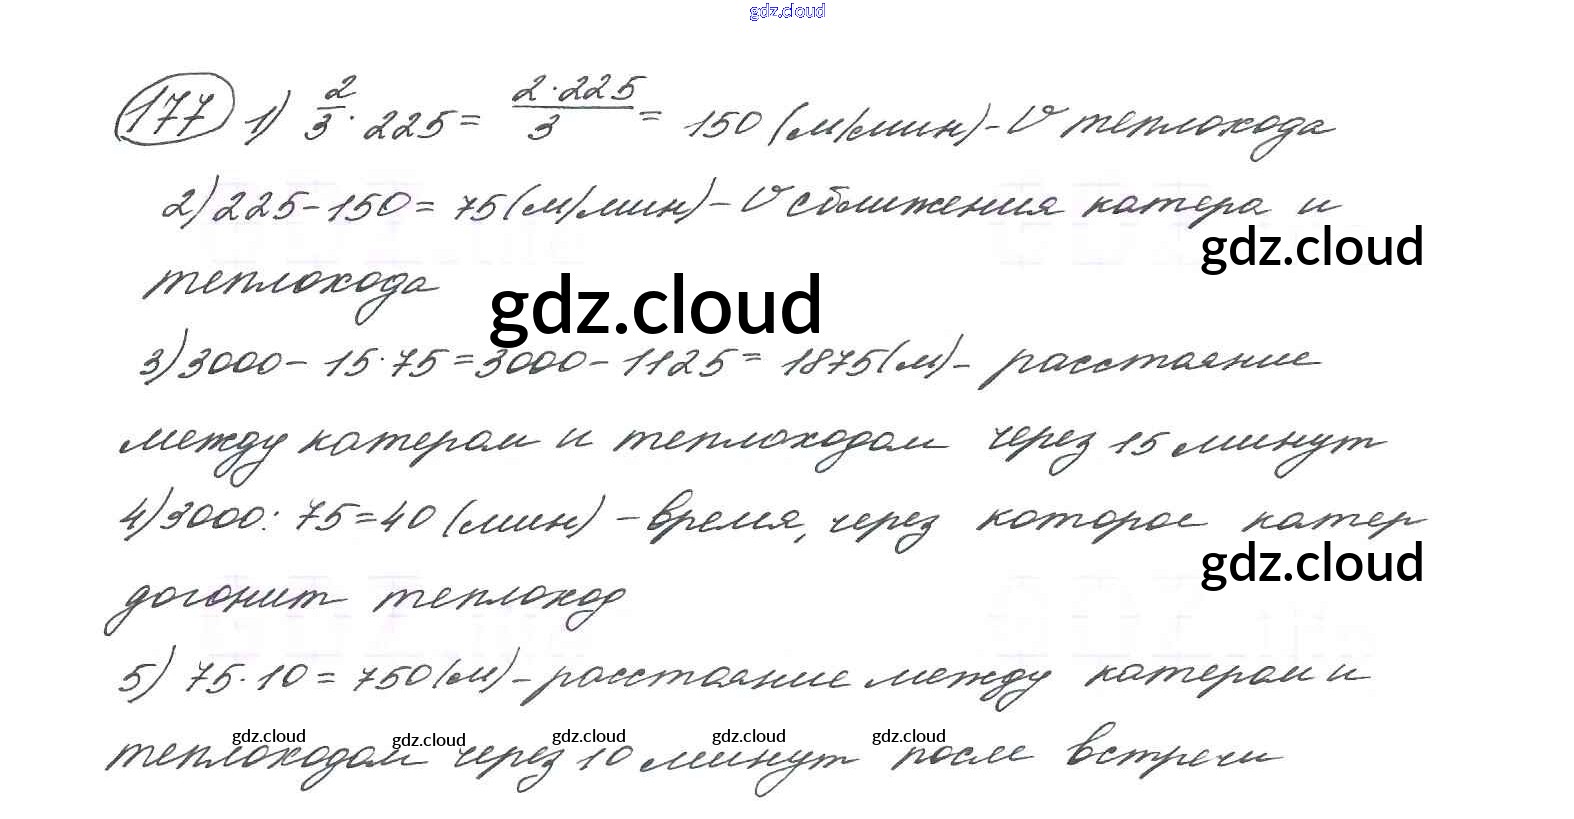 gdz.cloud
177 1) 2/3 · 225 = 2·225/3 = 150 (м/мин) - V теплохода
2) 225 - 150 = 75 (м/мин) - V сближения катера и
gdz.cloud
теплохода
gdz.cloud
3) 3000 - 15·75 = 3000 - 1125 = 1875 (м) - расстояние
между катером и теплоходом через 15 минут
4) 3000 : 75 = 40 (мин) - время, через которое катер
gdz.cloud
догонит теплоход
5) 75·10 = 750 (м) - расстояние между катером и
gdz.cloud gdz.cloud gdz.cloud gdz.cloud gdz.cloud
теплоходом через 10 минут после встречи